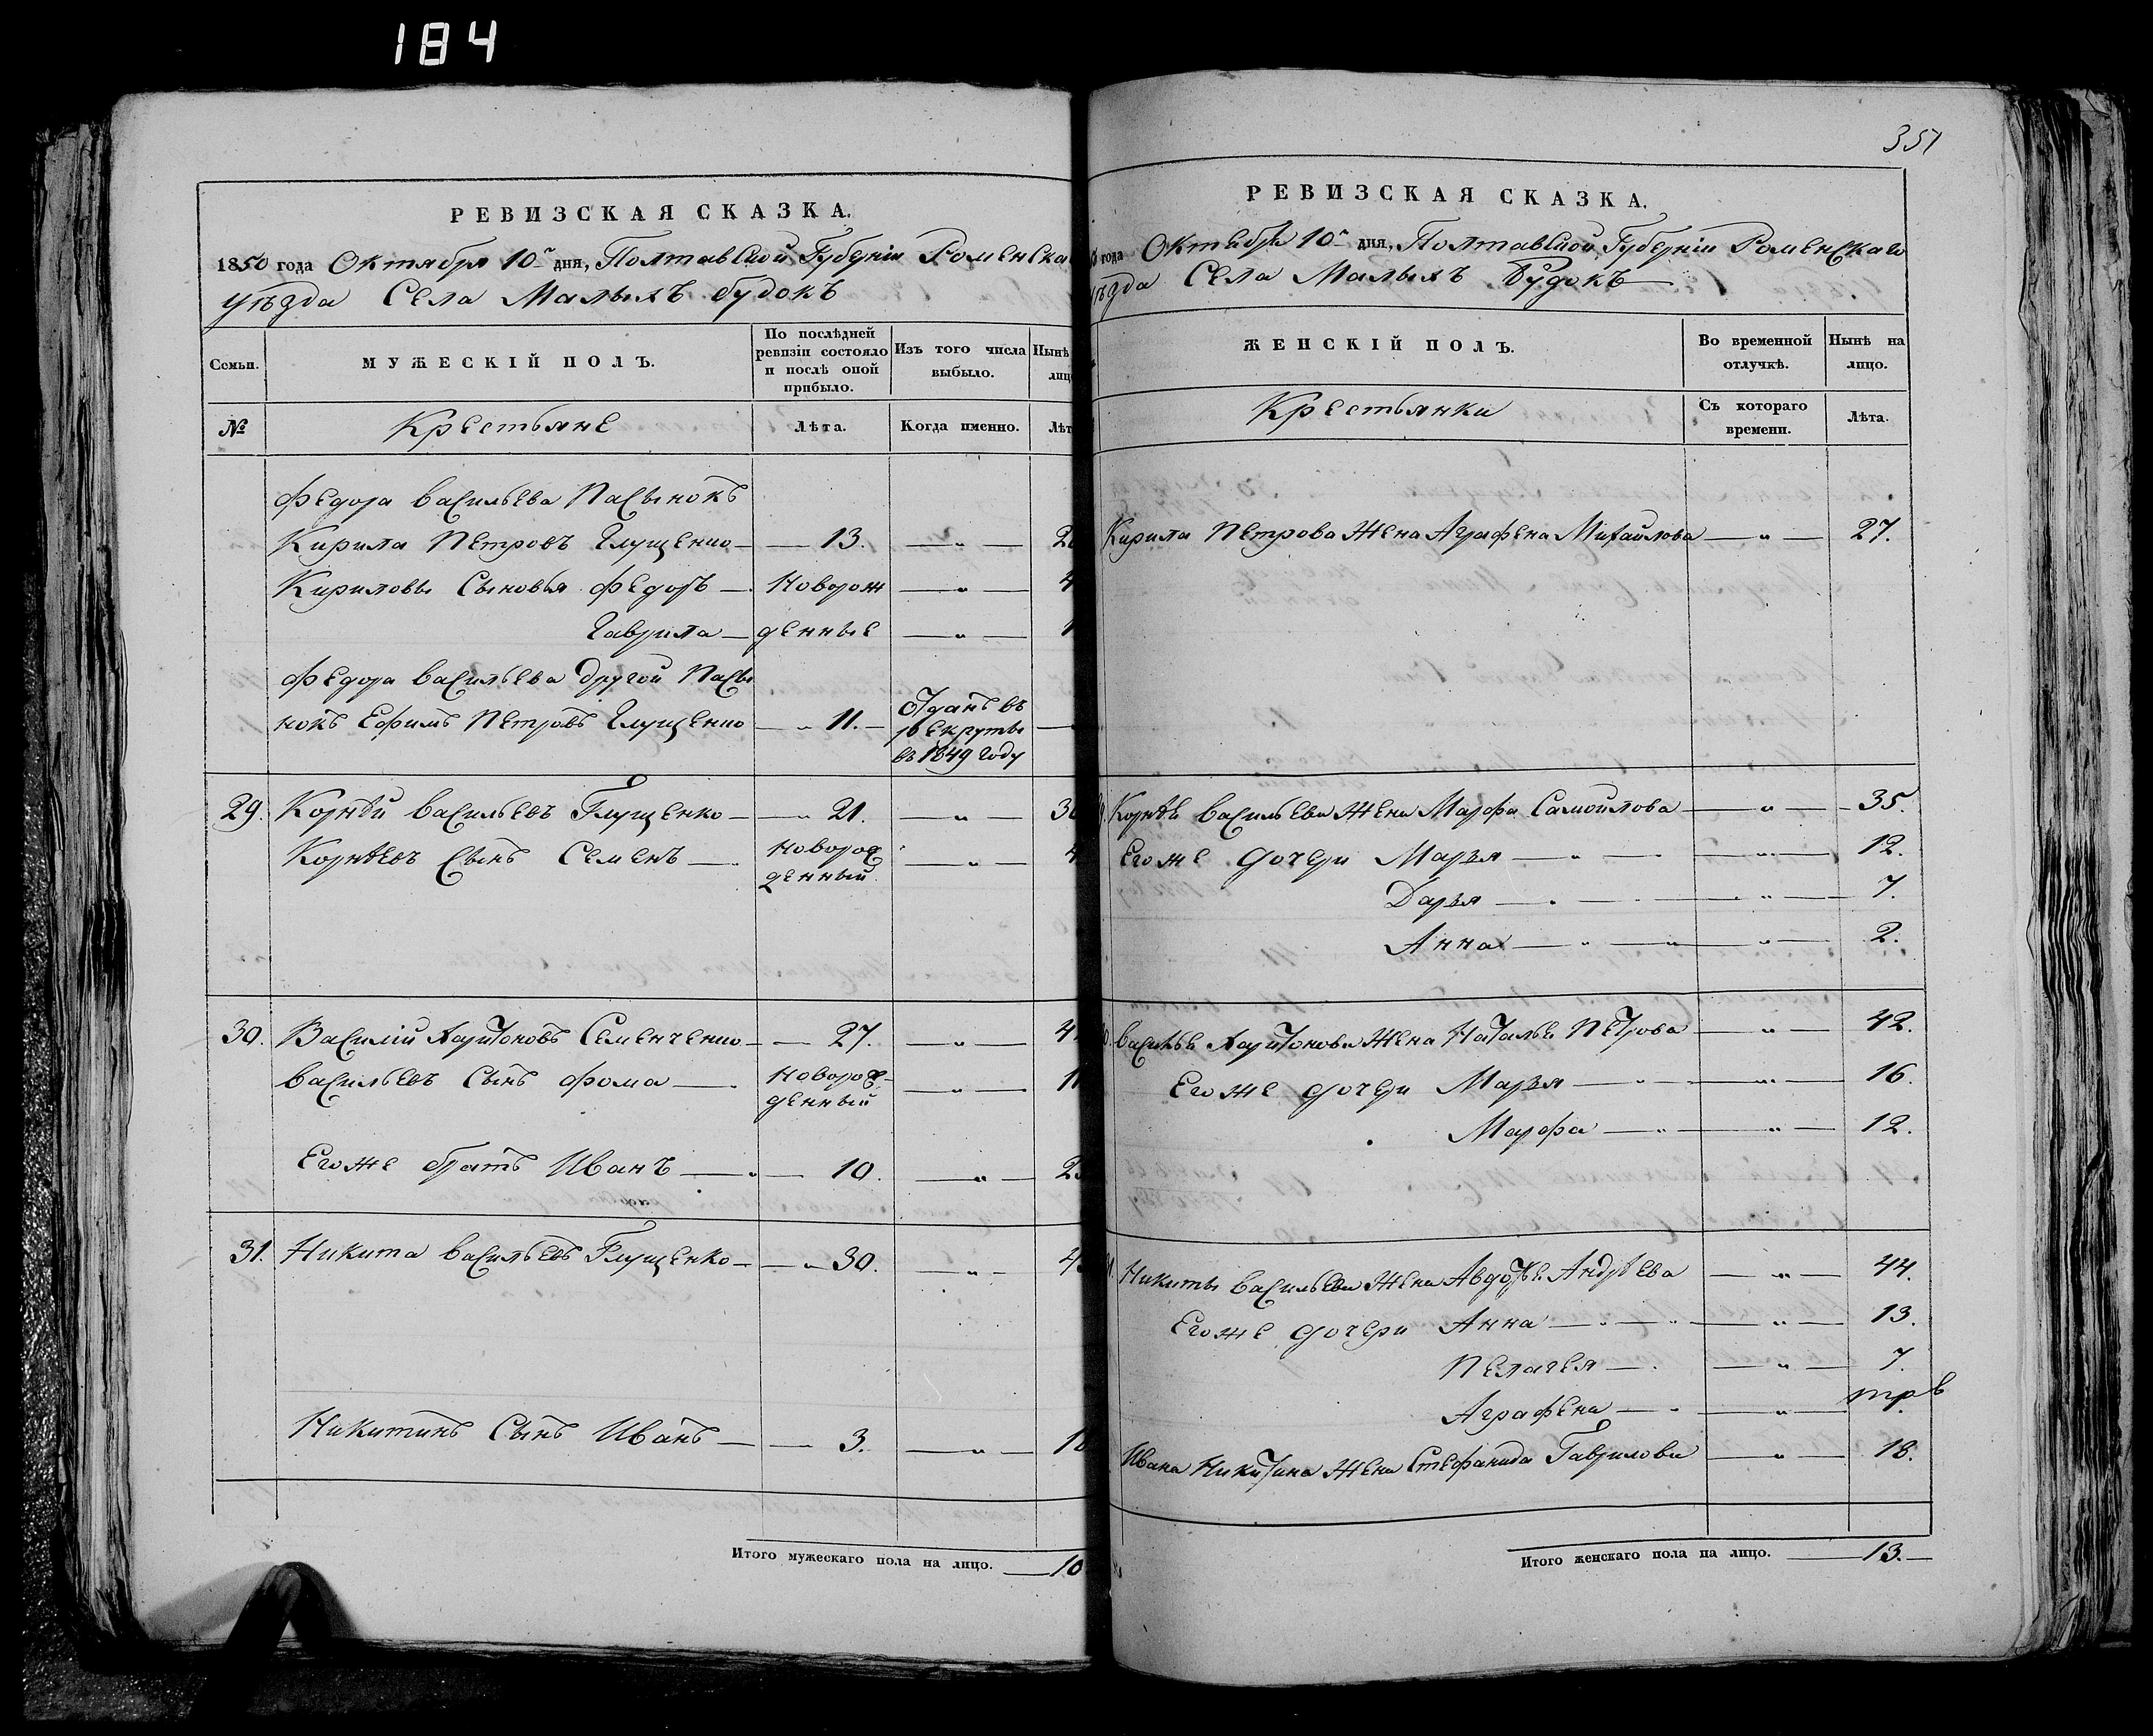 184
РЕВИЗСКАЯ СКАЗКА.
1850 года Октября 10 дня, Полтавской Губерніи Роменска
уѣзда Села Малыхъ будокъ
Семьи.
МУЖЕСКІЙ ПОЛЪ.
По послѣдней
ревизіи состояло
и послѣ оной
прибыло.
Изъ того числа
выбыло.
Нынѣ
лиц
№
Крестьяне
Лѣта.
Когда именно.
Лѣт
Федора васильева Пасынокъ
Кирила Петровъ Глущенко — 13. — „ — 2
Кириловы Сыновья Федоръ — Новорож — „ — 4
Гаврила — денные — „ — 1
Федора васильева другой Пасы
нокъ Ефимъ Петровъ Глущенко — „ 11. —
Отданъ въ
рекруты
въ 1849 году
29. Корнѣй васильевъ Глущенко — „ 21. — „ — 30
Корнѣевъ Сынъ Семенъ — новорож
денный — „ — 4
30. Василій Харитоновъ Семенченко — 27. — „ — 4
васильевъ Сынъ Фома — новорож-
денный — „ — 1
Егоже братъ Иванъ — 10. — „ — 2
31. Никита васильевъ Глущенко — „ 30. — „ — 4
Никитинъ Сынъ Иванъ — 3. — „ — 1
Итого мужескаго пола на лицо. — 10
351
РЕВИЗСКАЯ СКАЗКА.
года Октября 10 дня, Полтавской Губерніи Роменскаго
уѣзда Села Малыхъ Будокъ
ЖЕНСКІЙ ПОЛЪ.
Во временной
отлучкѣ.
Нынѣ на
лицо.
Крестьянки
Съ котораго
времени.
Лѣта.
Кирила Петрова Жена Аграфена Михайлова — „ — 27.
Корнѣя васильева Жена Марфа Самойлова — „ — 35.
Егоже дочери Марья — „ — 12.
Дарья — „ — 7.
Анна — „ — 2.
василья Харитонова Жена Наталья Петрова — „ — 42.
Егоже дочери Марья — „ — 16.
Марфа — „ — 12.
Никиты васильева Жена Авдотья Андрѣева — „ — 44.
Егоже дочери Анна — „ — 13.
Пелагея — „ — 7.
Аграфена — „ —
Ивана Никитина Жена Стефанида Гаврилова — „ — 18.
Итого женскаго пола на лицо. — 13. —